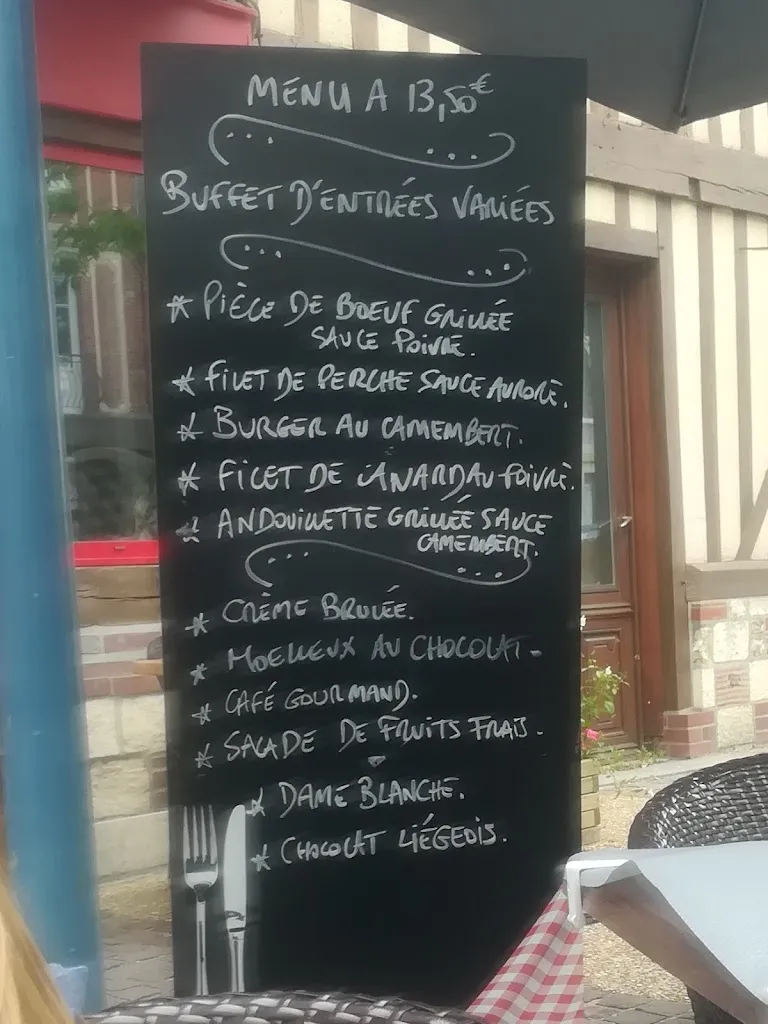 MENU A 13,50€
BUFFET D'ENTRÉES VARIÉES
* PIÈCE DE BOEUF GRILLÉE
SAUCE POIVRE.
* FILET DE PERCHE SAUCE AURORE.
* BURGER AU CAMEMBERT.
* FILET DE CANARD AU POIVRE.
* ANDOUILLETTE GRILLÉE SAUCE
CAMEMBERT.
* CRÈME BRULÉE.
* MOELLEUX AU CHOCOLAT.
* CAFÉ GOURMAND.
* SALADE DE FRUITS FRAIS.
* DAME BLANCHE.
* CHOCOLAT LIÉGEOIS.